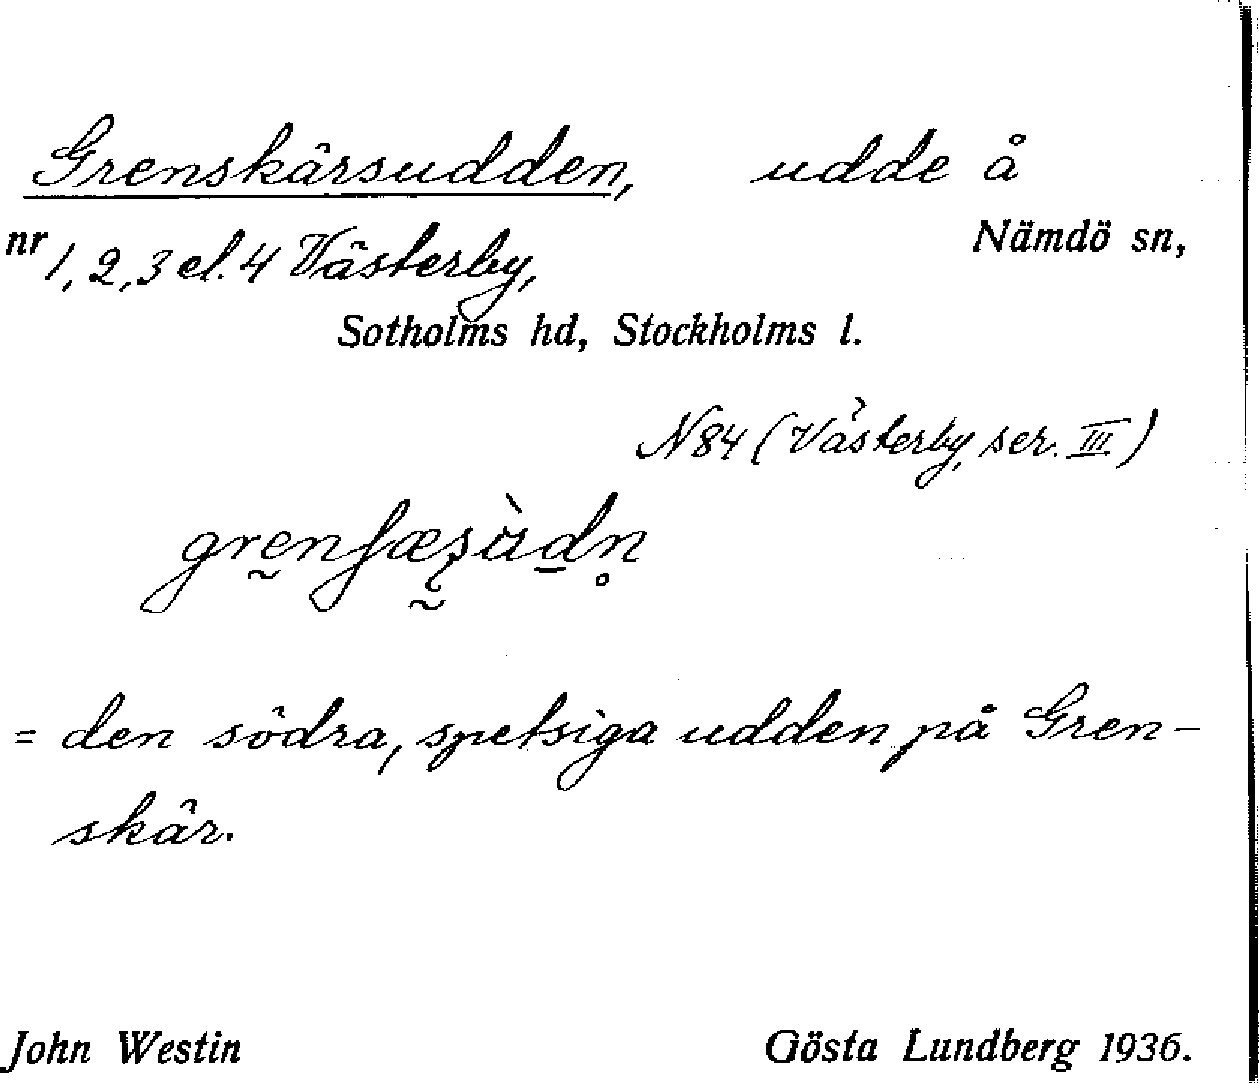 Grenskärsudden, udde å
nr 1, 2, 3 el. 4 Västerby, Nämdö sn,
Sotholms hd, Stockholms l.
N 84 (Västerby, ser. III)
= den södra, spetsiga udden på Gren-
skär.
John Westin Gösta Lundberg 1936.